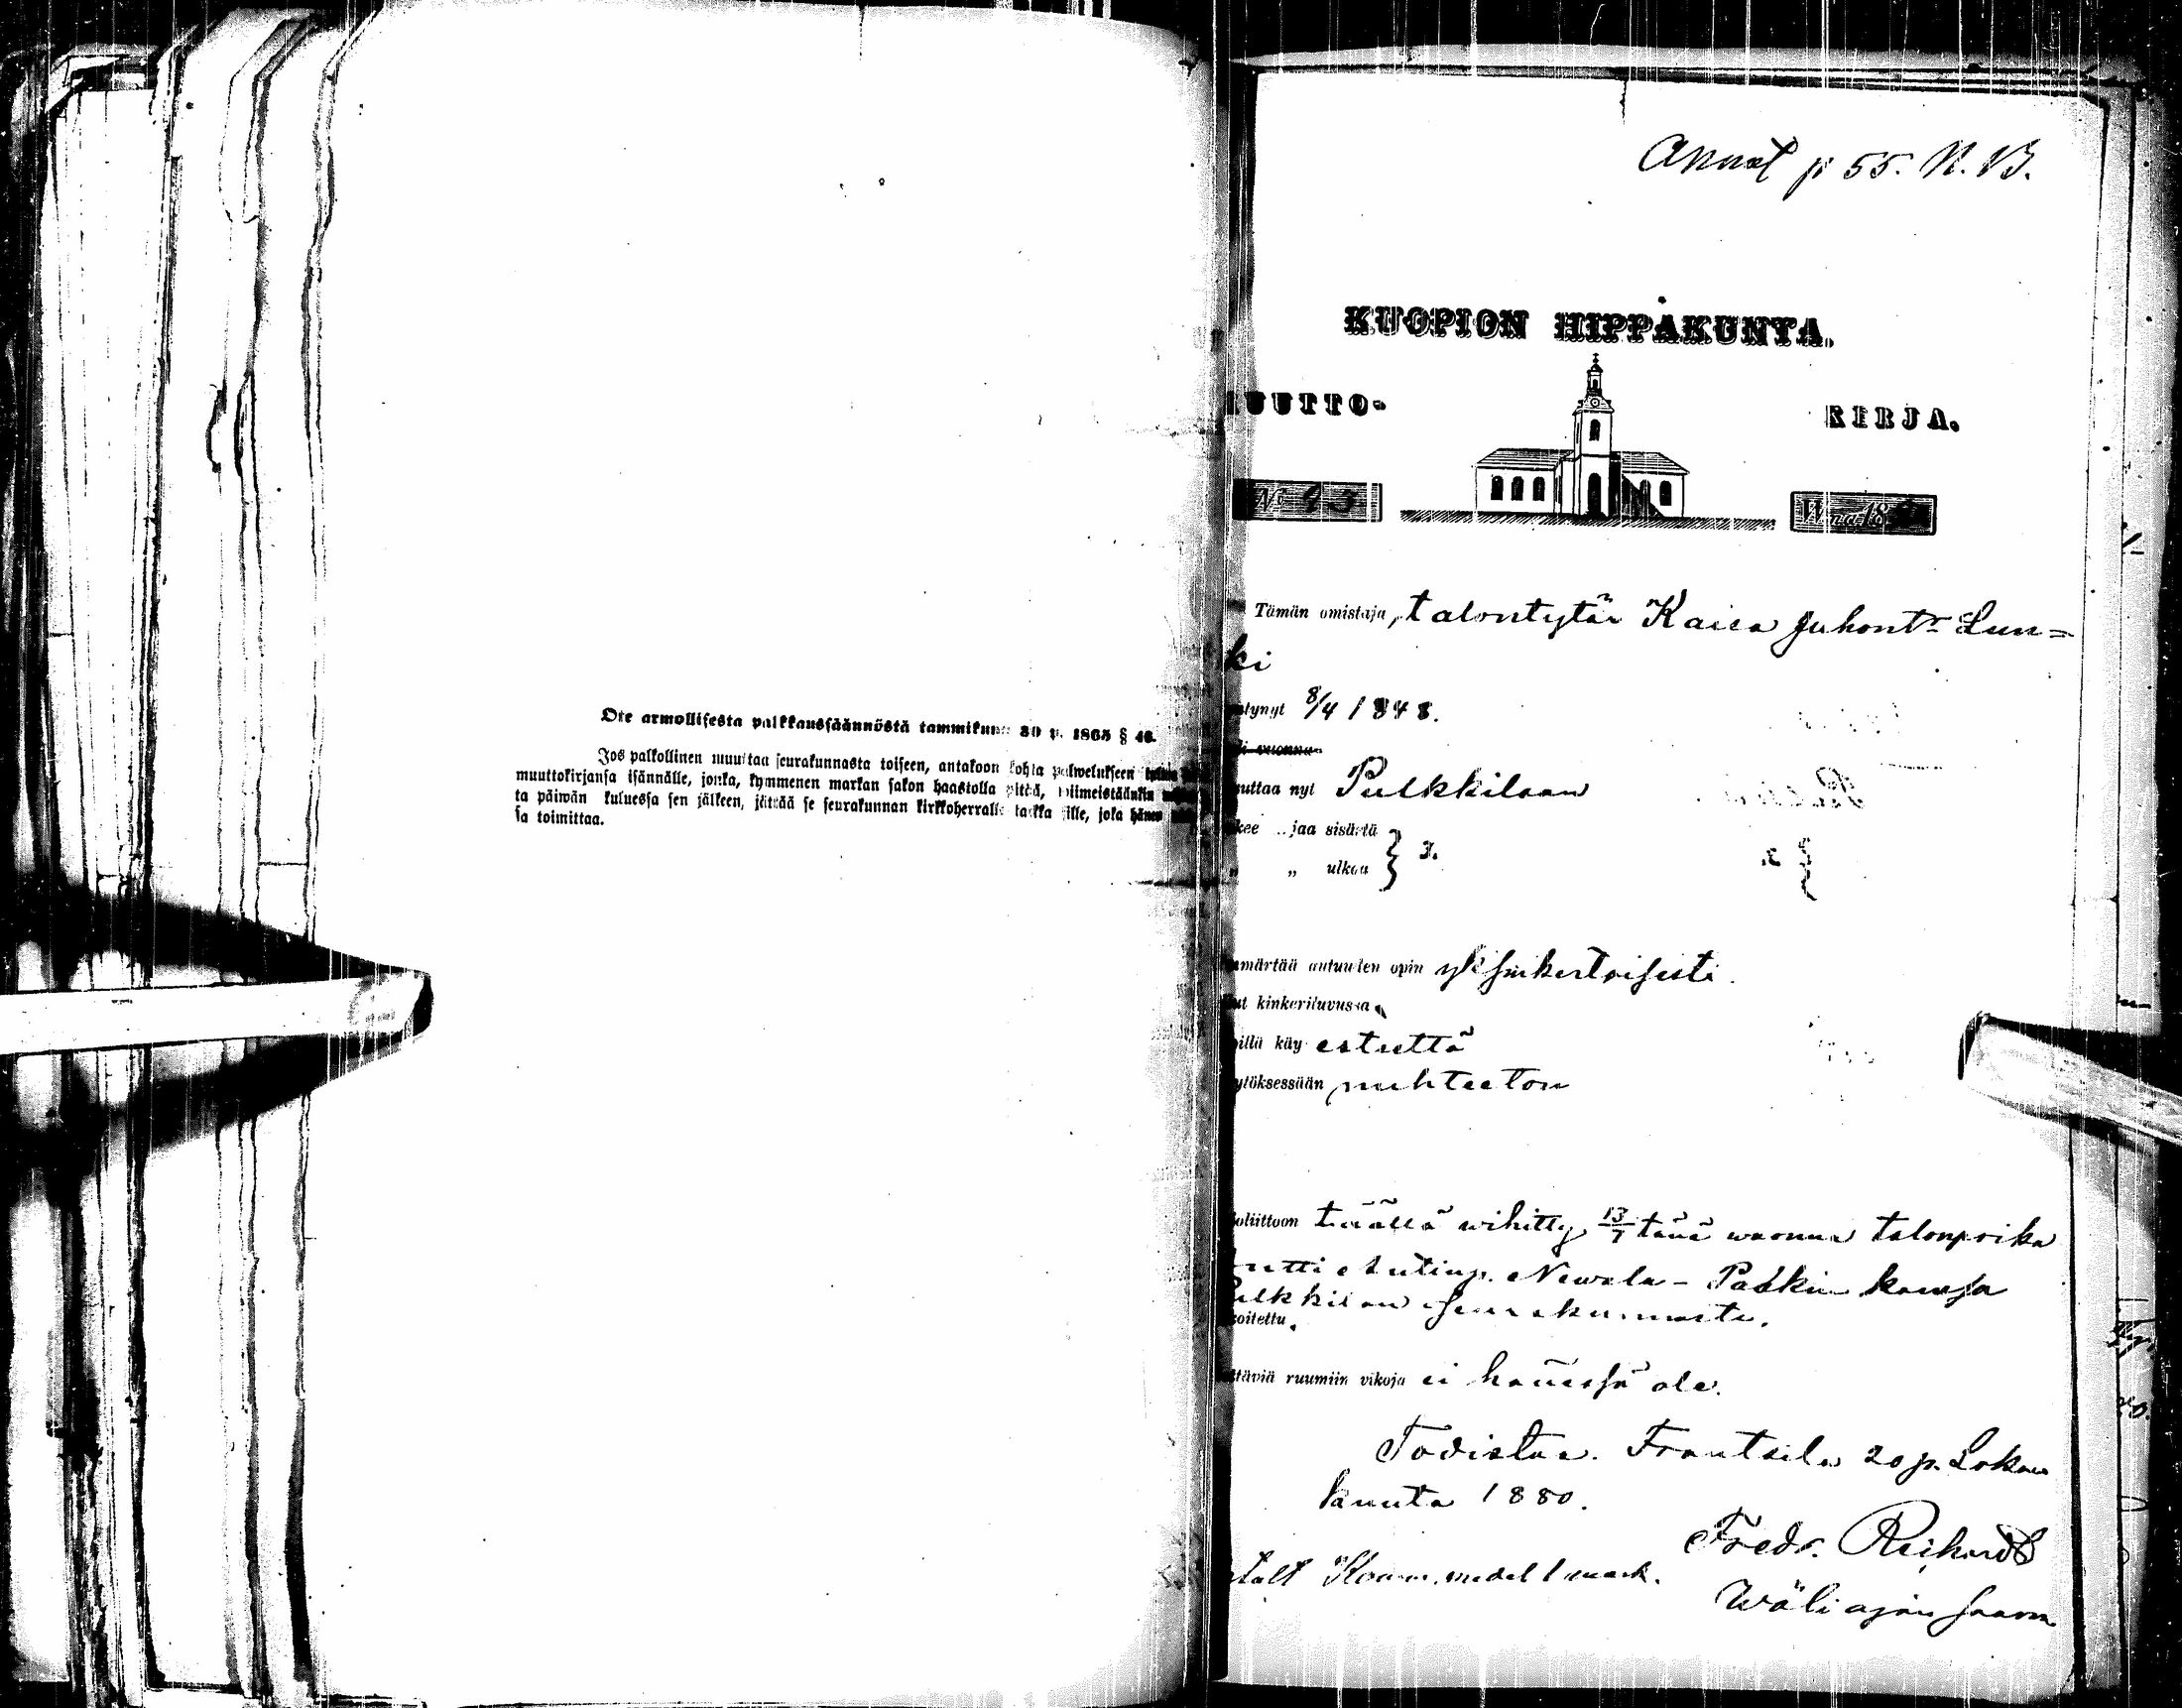 Ote armollisesta palkkaussäännöstä tammikuun 30 p. 1865 § 46.
Jos palkollinen muuttaa seurakunnasta toiseen, antakoon kohta palwelukseen
muuttokirjansa isännälle, jonka, kymmenen markan sakon haastolla pitää, wiimeistäänkin
ta päiwän kuluessa sen jälkeen, jättää se seurakunnan kirkkoherralle taikka sille, joka hänen
sa toimittaa.
Annot p 55. N. B.
KUOPION HIPPAKUNTA.
UUTTO-
KIRJA.
No 93
Wna 18
Tämän omistaja, talontytär Kaisa Juhontr Lun=
ki
tynyt 8/4 1848.
i vuonna
uttaa nyt Pulkkilaan
kee ..jaa sisältä
„ ulkoa } 3.
märtää autuuden opin yksinkertaisesti.
ut kinkeriluvussa
illä käy estettä
ytöksessään nuhteeton
oliittoon täällä wihitty 13/7 tänä wuonna talonpoika
Antinp. Newala - Paskin kanssa
ulkkilan seurakunnasta.
koitettu.
täviä ruumiin vikoja ei hänessä ole.
Todistaa. Frantsila 20 p. Loka
kuuta 1880.
Fredr. Reihardt
Wäliajan saarn.
talt Komm.medel 1 mark.